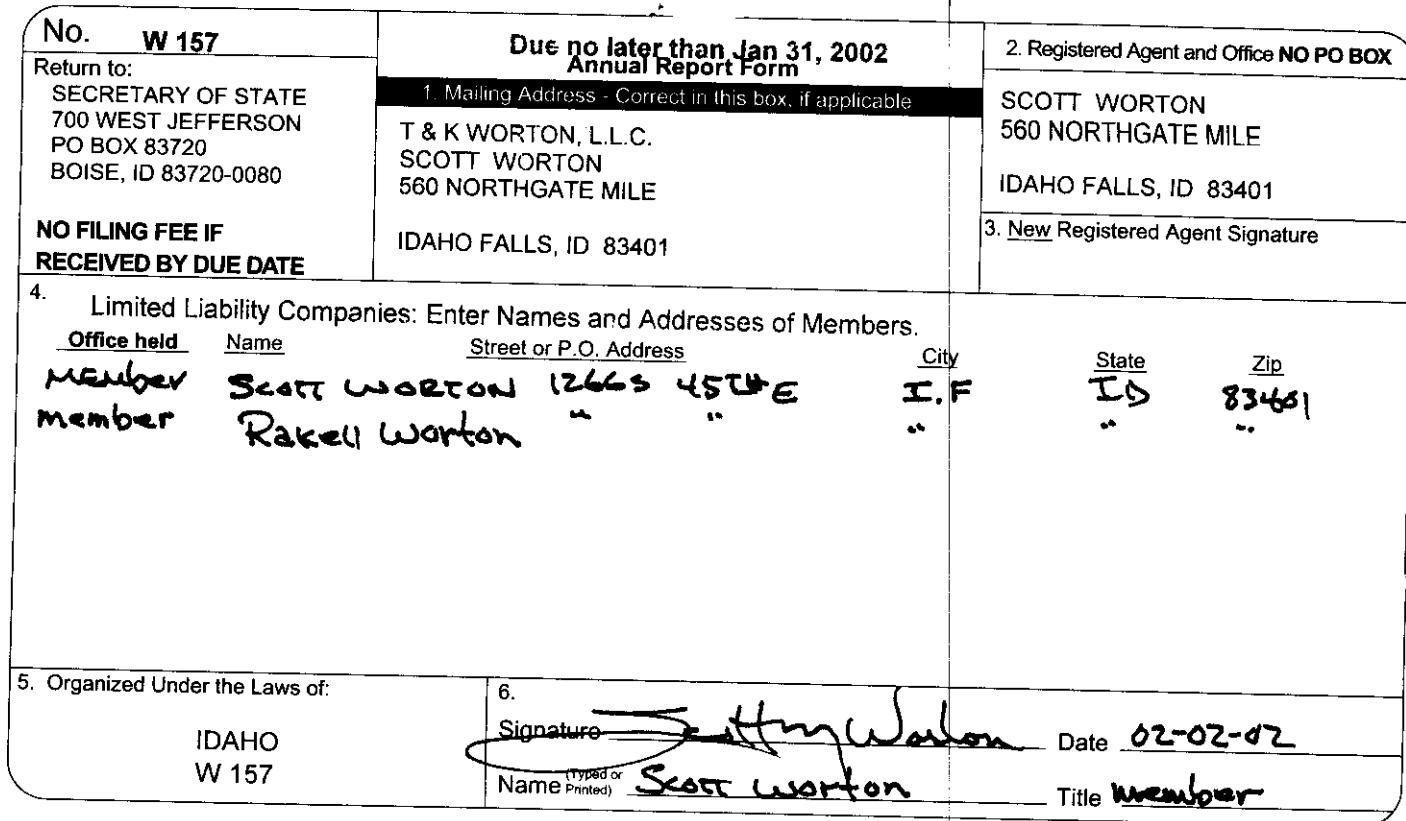 No. W 157
Return to:
SECRETARY OF STATE
700 WEST JEFFERSON
PO BOX 83720
BOISE, ID 83720-0080
NO FILING FEE IF
RECEIVED BY DUE DATE
Due no later than Jan 31, 2002
Annual Report Form
1. Mailing Address - Correct in this box, if applicable
T & K WORTON, L.L.C.
SCOTT WORTON
560 NORTHGATE MILE
IDAHO FALLS, ID 83401
2. Registered Agent and Office NO PO BOX
SCOTT WORTON
560 NORTHGATE MILE
IDAHO FALLS, ID 83401
3. New Registered Agent Signature
4. Limited Liability Companies: Enter Names and Addresses of Members.
Office held Name Street or P.O. Address City State Zip
Member Scott Worton 1266 S 45TH E I.F ID 83401
member Rakell Worton " " " " "
5. Organized Under the Laws of:
IDAHO
W 157
6.
Signature Scott Worton Date 02-02-02
Name (Typed or Printed) Scott Worton Title member